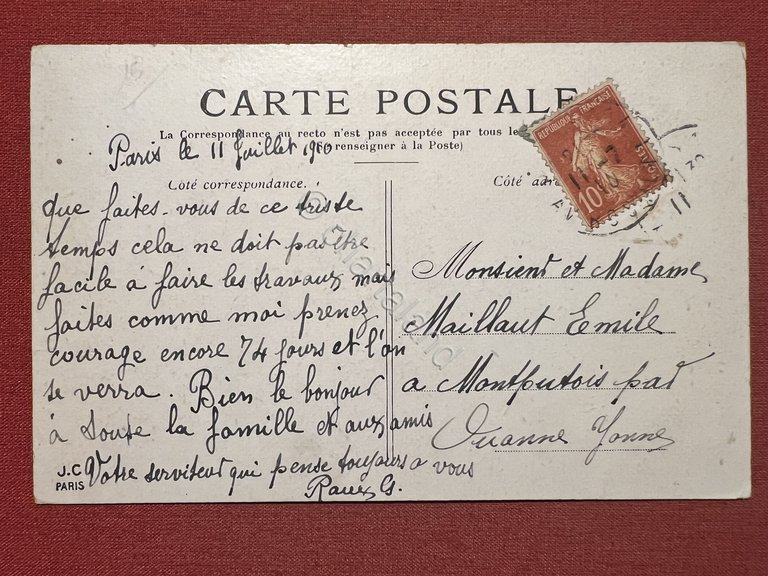 CARTE POSTALE
La Correspondance au recto n'est pas acceptée par tous le
renseigner à la Poste)
Paris le 11 Juillet 1910
Côté correspondance.
Côté adr
REPUBLIQUE FRANÇAISE
10
POSTES
11
que faites-vous de ce triste
temps cela ne doit pas être
facile à faire les travaux mais
faites comme moi prenez
courage encore 74 jours et l'on
se verra. Bien le bonjour
à toute la famille et aux amis
Votre serviteur qui pense toujours a vous
G.
Monsieur et Madame
Maillaut Emile
a Montputois par
Ouanne Yonne
J.C
PARIS